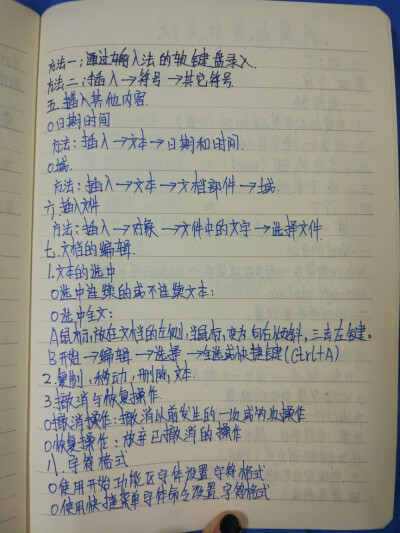 方法一：通过输入法的软键盘录入.
方法二：插入→符号→其它符号.
五.插入其他内容.
O日期时间
方法：插入→文本→日期和时间.
O域.
方法：插入→文本→文档部件→域.
六.插入文件
方法：插入→对象→文件中的文字→选择文件.
七.文档的编辑.
1.文本的选中
O选中连续的或不连续文本：
O选中全文：
A鼠标放在文档的左侧,当鼠标变为向右倾斜,三击左键。
B开始→编辑→选择→全选或快捷键(Ctrl+A)
2.复制,移动,删除文本.
3.撤消与恢复操作.
O撤消操作：撤消以前发生的一次或多次操作
O恢复操作：放弃已撤消的操作
八.字符格式
O使用开始功能区字体设置字符格式
O使用快捷菜单字体命令设置字符格式